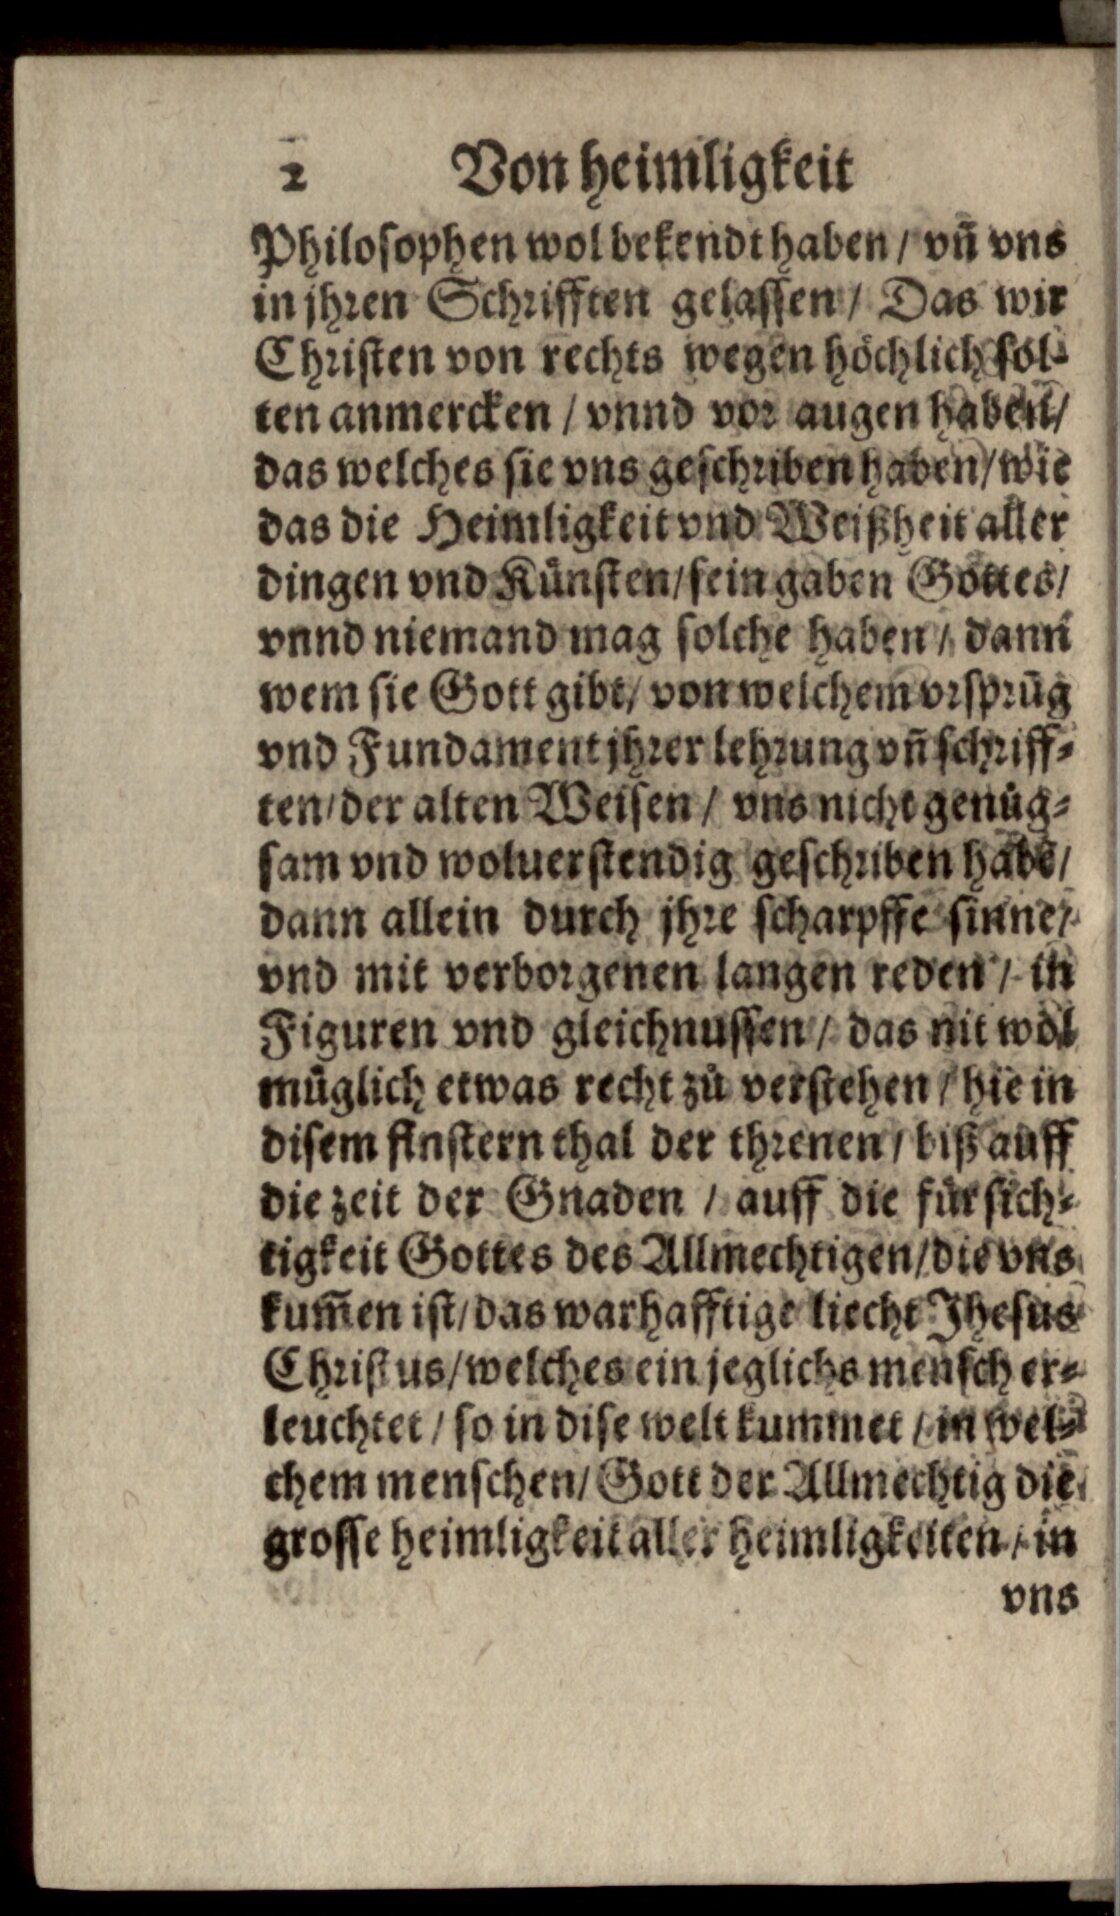 2 Von heimligkeit
Philosophen wol bekendt haben / vñ vns
in jhren Schrifften gelassen / Das wir
Christen von rechts wegen höchlich sol⸗
ten anmercken / vnnd vor augen haben /
das welches sie vns geschriben haben / wie
das die Heimligkeit vnd Weißheit aller
dingen vnd Künsten / sein gaben Gottes /
vnnd niemand mag solche haben / dann
wem sie Gott gibt / von welchem vrsprūg
vnd Fundament jhrer lehrung vñ schriff⸗
ten / der alten Weisen / vns nicht genüg⸗
sam vnd woluerstendig geschriben habē /
dann allein durch jhre scharpffe sinne /
vnd mit verborgenen langen reden / in
Figuren vnd gleichnussen / das nit wol
müglich etwas recht zů verstehen / hie in
disem finstern thal der threnen / biß auff
die zeit der Gnaden / auff die fürsich⸗
tigkeit Gottes des Allmechtigen / die vns
kum̃en ist / das warhafftige liecht Jhesus
Christus / welches ein jeglichs mensch er⸗
leuchtet / so in dise welt kummet / in wel⸗
chem menschen / Gott der Allmechtig die
grosse heimligkeit aller heimligkeiten / in
vns